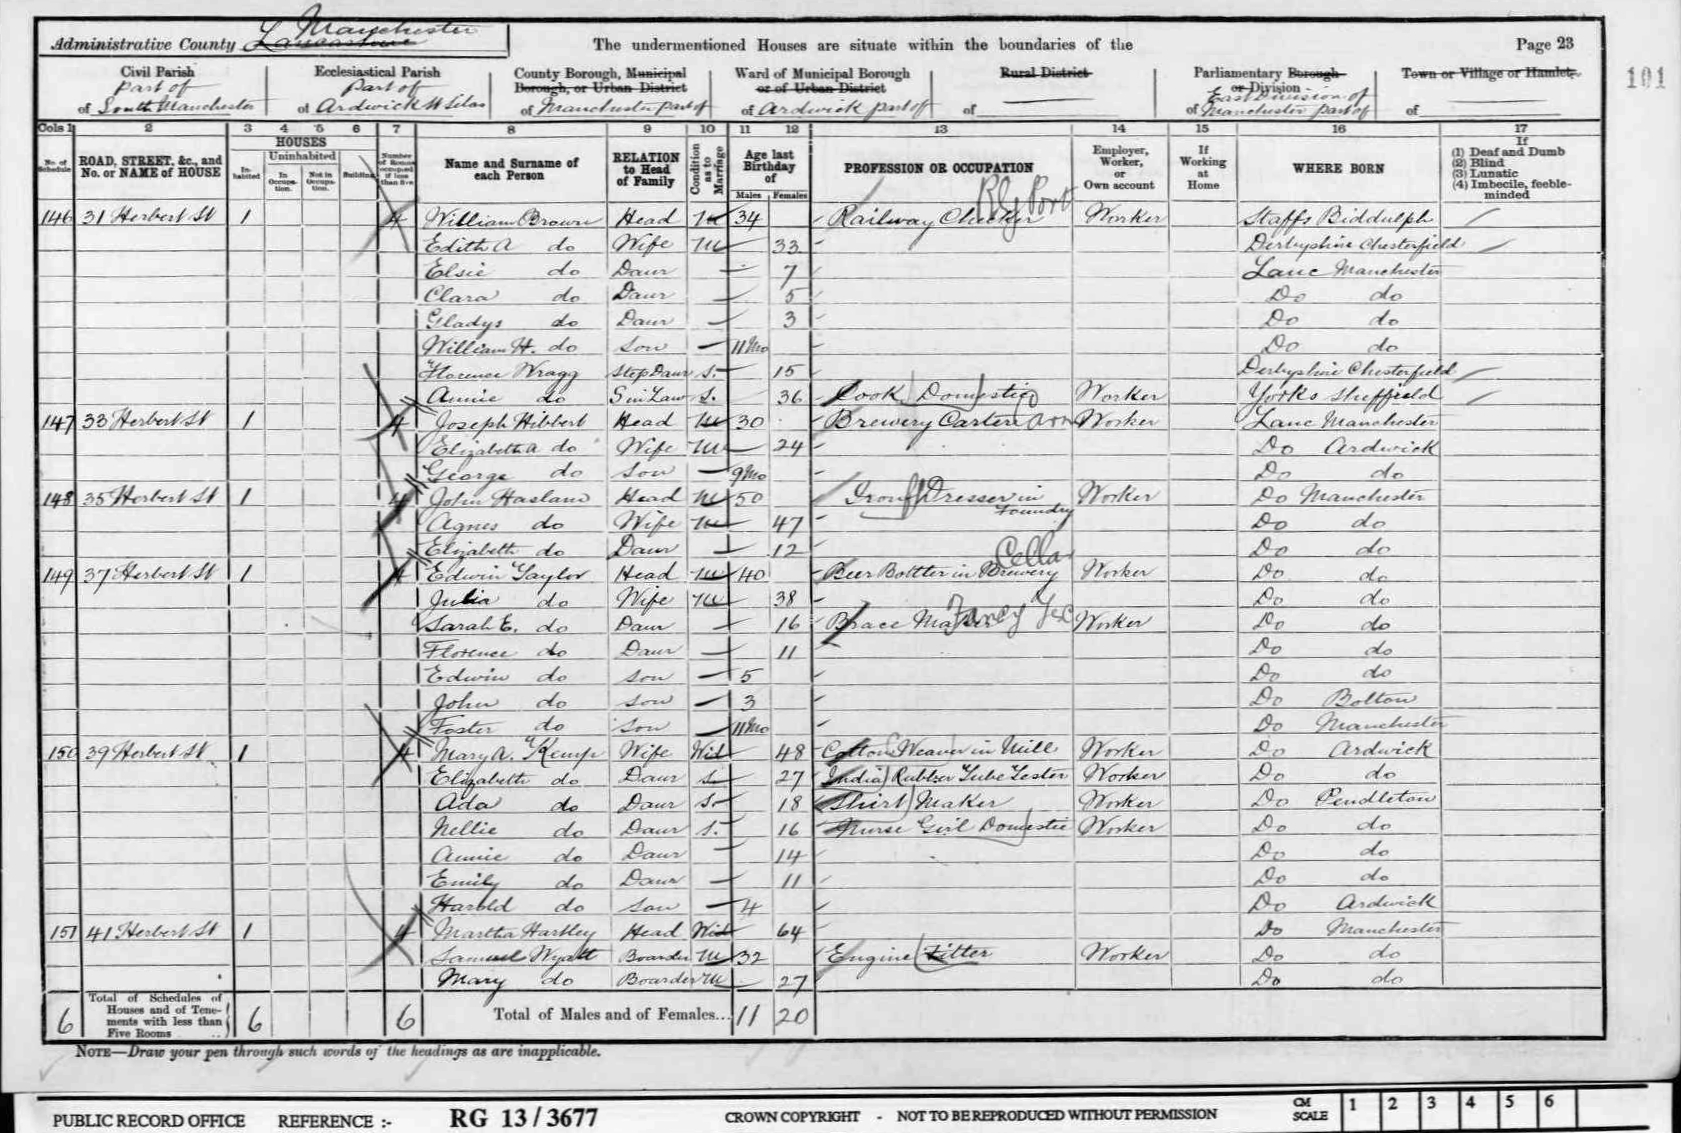 Administrative County Lancashire Manchester
The undermentioned Houses are situate within the boundaries of the
Page 23
101
Civil Parish part of of South Manchester
Ecclesiastical Parish Part of of Ardwick St Silas
County Borough, Municipal Borough, or Urban District of Manchester part of
Ward of Municipal Borough or of Urban District of Ardwick part of
Rural District of
Parliamentary Borough or Division East Division of of Manchester part of
Town or Village or Hamlet of
Cols 1 2 3 4 5 6 7 8 9 10 11 12 13 14 15 16 17
No. of Schedule
ROAD, STREET, &c., and No. or NAME of HOUSE
HOUSES
Inhabited
Uninhabited
In Occupation.
Not in Occupation.
Building
Number of Rooms occupied if less than five
Name and Surname of each Person
RELATION to Head of Family
Condition as to Marriage
Age last Birthday of
Males Females
PROFESSION OR OCCUPATION
Employer, Worker, or Own account
If Working at Home
WHERE BORN
If
(1) Deaf and Dumb
(2) Blind
(3) Lunatic
(4) Imbecile, feeble-minded
146 31 Herbert St 1 4 William Brown Head M 34 Railway Checker Worker Staffs Biddulph
Edith A do Wife M 33 Derbyshire Chesterfield
Elsie do Daur 7 Lanc Manchester
Clara do Daur 5 Do do
Gladys do Daur 3 Do do
William H. do Son 11 Mo Do do
Florence Wragg Step Daur S. 15 Derbyshire Chesterfield
Annie do S in Law S. 36 Cook Domestic Worker Yorks Sheffield
147 33 Herbert St 1 4 Joseph Hibbert Head M 30 Brewery Carter Worker Lanc Manchester
Elizabeth A do Wife M 24 Do Ardwick
George do Son 9 Mo Do do
148 35 Herbert St 1 4 John Haslam Head M 50 Iron Dresser in Foundry Worker Do Manchester
Agnes do Wife M 47 Do do
Elizabeth do Daur 12 Do do
149 37 Herbert St 1 4 Edwin Taylor Head M 40 Beer Bottler in Brewery Cellar Worker Do do
Julia do Wife M 38 Do do
Sarah E. do Daur 16 Brace Maker Fancy Worker Do do
Florence do Daur 11 Do do
Edwin do Son 5 Do do
John do Son 3 Do Bolton
Foster do Son 11 Mo Do Manchester
150 39 Herbert St 1 4 Mary A. Kemp Wife Wid 48 Cotton Weaver in Mill Worker Do Ardwick
Elizabeth do Daur S. 27 India Rubber Tube Tester Worker Do do
Ada do Daur S. 18 Shirt Maker Worker Do Pendleton
Nellie do Daur S. 16 Nurse Girl Domestic Worker Do do
Annie do Daur 14 Do do
Emily do Daur 11 Do do
Harold do Son 4 Do Ardwick
151 41 Herbert St 1 4 Martha Hartley Head Wid 64 Do Manchester
Samuel Wyatt Boarder M 32 Engine Fitter Worker Do do
Mary do Boarder M 27 Do do
6 Total of Schedules of Houses and of Tenements with less than Five Rooms 6 6 Total of Males and of Females... 11 20
NOTE—Draw your pen through such words of the headings as are inapplicable.
PUBLIC RECORD OFFICE REFERENCE :- RG 13/3677 CROWN COPYRIGHT - NOT TO BE REPRODUCED WITHOUT PERMISSION CM SCALE 1 2 3 4 5 6